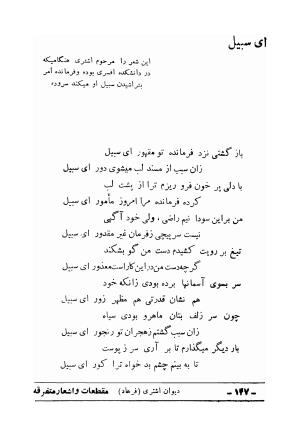 ای سبیل
این شعر را مرحوم اشتری هنگامیکه
در دانشکده افسری بوده و فرمانده امر
بتراشیدن سبیل او میکند سروده
باز گشتی نزد فرمانده تو مقهور ای سبیل
زان سبب از مسند لب میشوی دور ای سبیل
با دلی پر خون فرو ریزم ترا از پشت لب
کرده فرمانده مرا امروز مأمور ای سبیل
من براین سودا نیم راضی ، ولی خود آگهی
نیست سرپیچی زفرمان غیر مقدور ای سبیل
تیغ بر رویت کشیدم دست من گو بشکند
گرچه دست من در این کار است معذور ای سبیل
سر بسوی آسمانها برده بودی زانکه خود
هم نشان قدرتی هم مظهر زور ای سبیل
چون سر زلف بتان ماهرو بودی سیاه
زان سبب گشتم زهجران تو رنجور ای سبیل
بار دیگر میگذارم تا بر آری سر ز پوست
تا به بینم چشم بد خواه ترا کور ای سبیل
– ۱۴۷ – دیوان اشتری (فرهاد) مقطعات و اشعار متفرقه